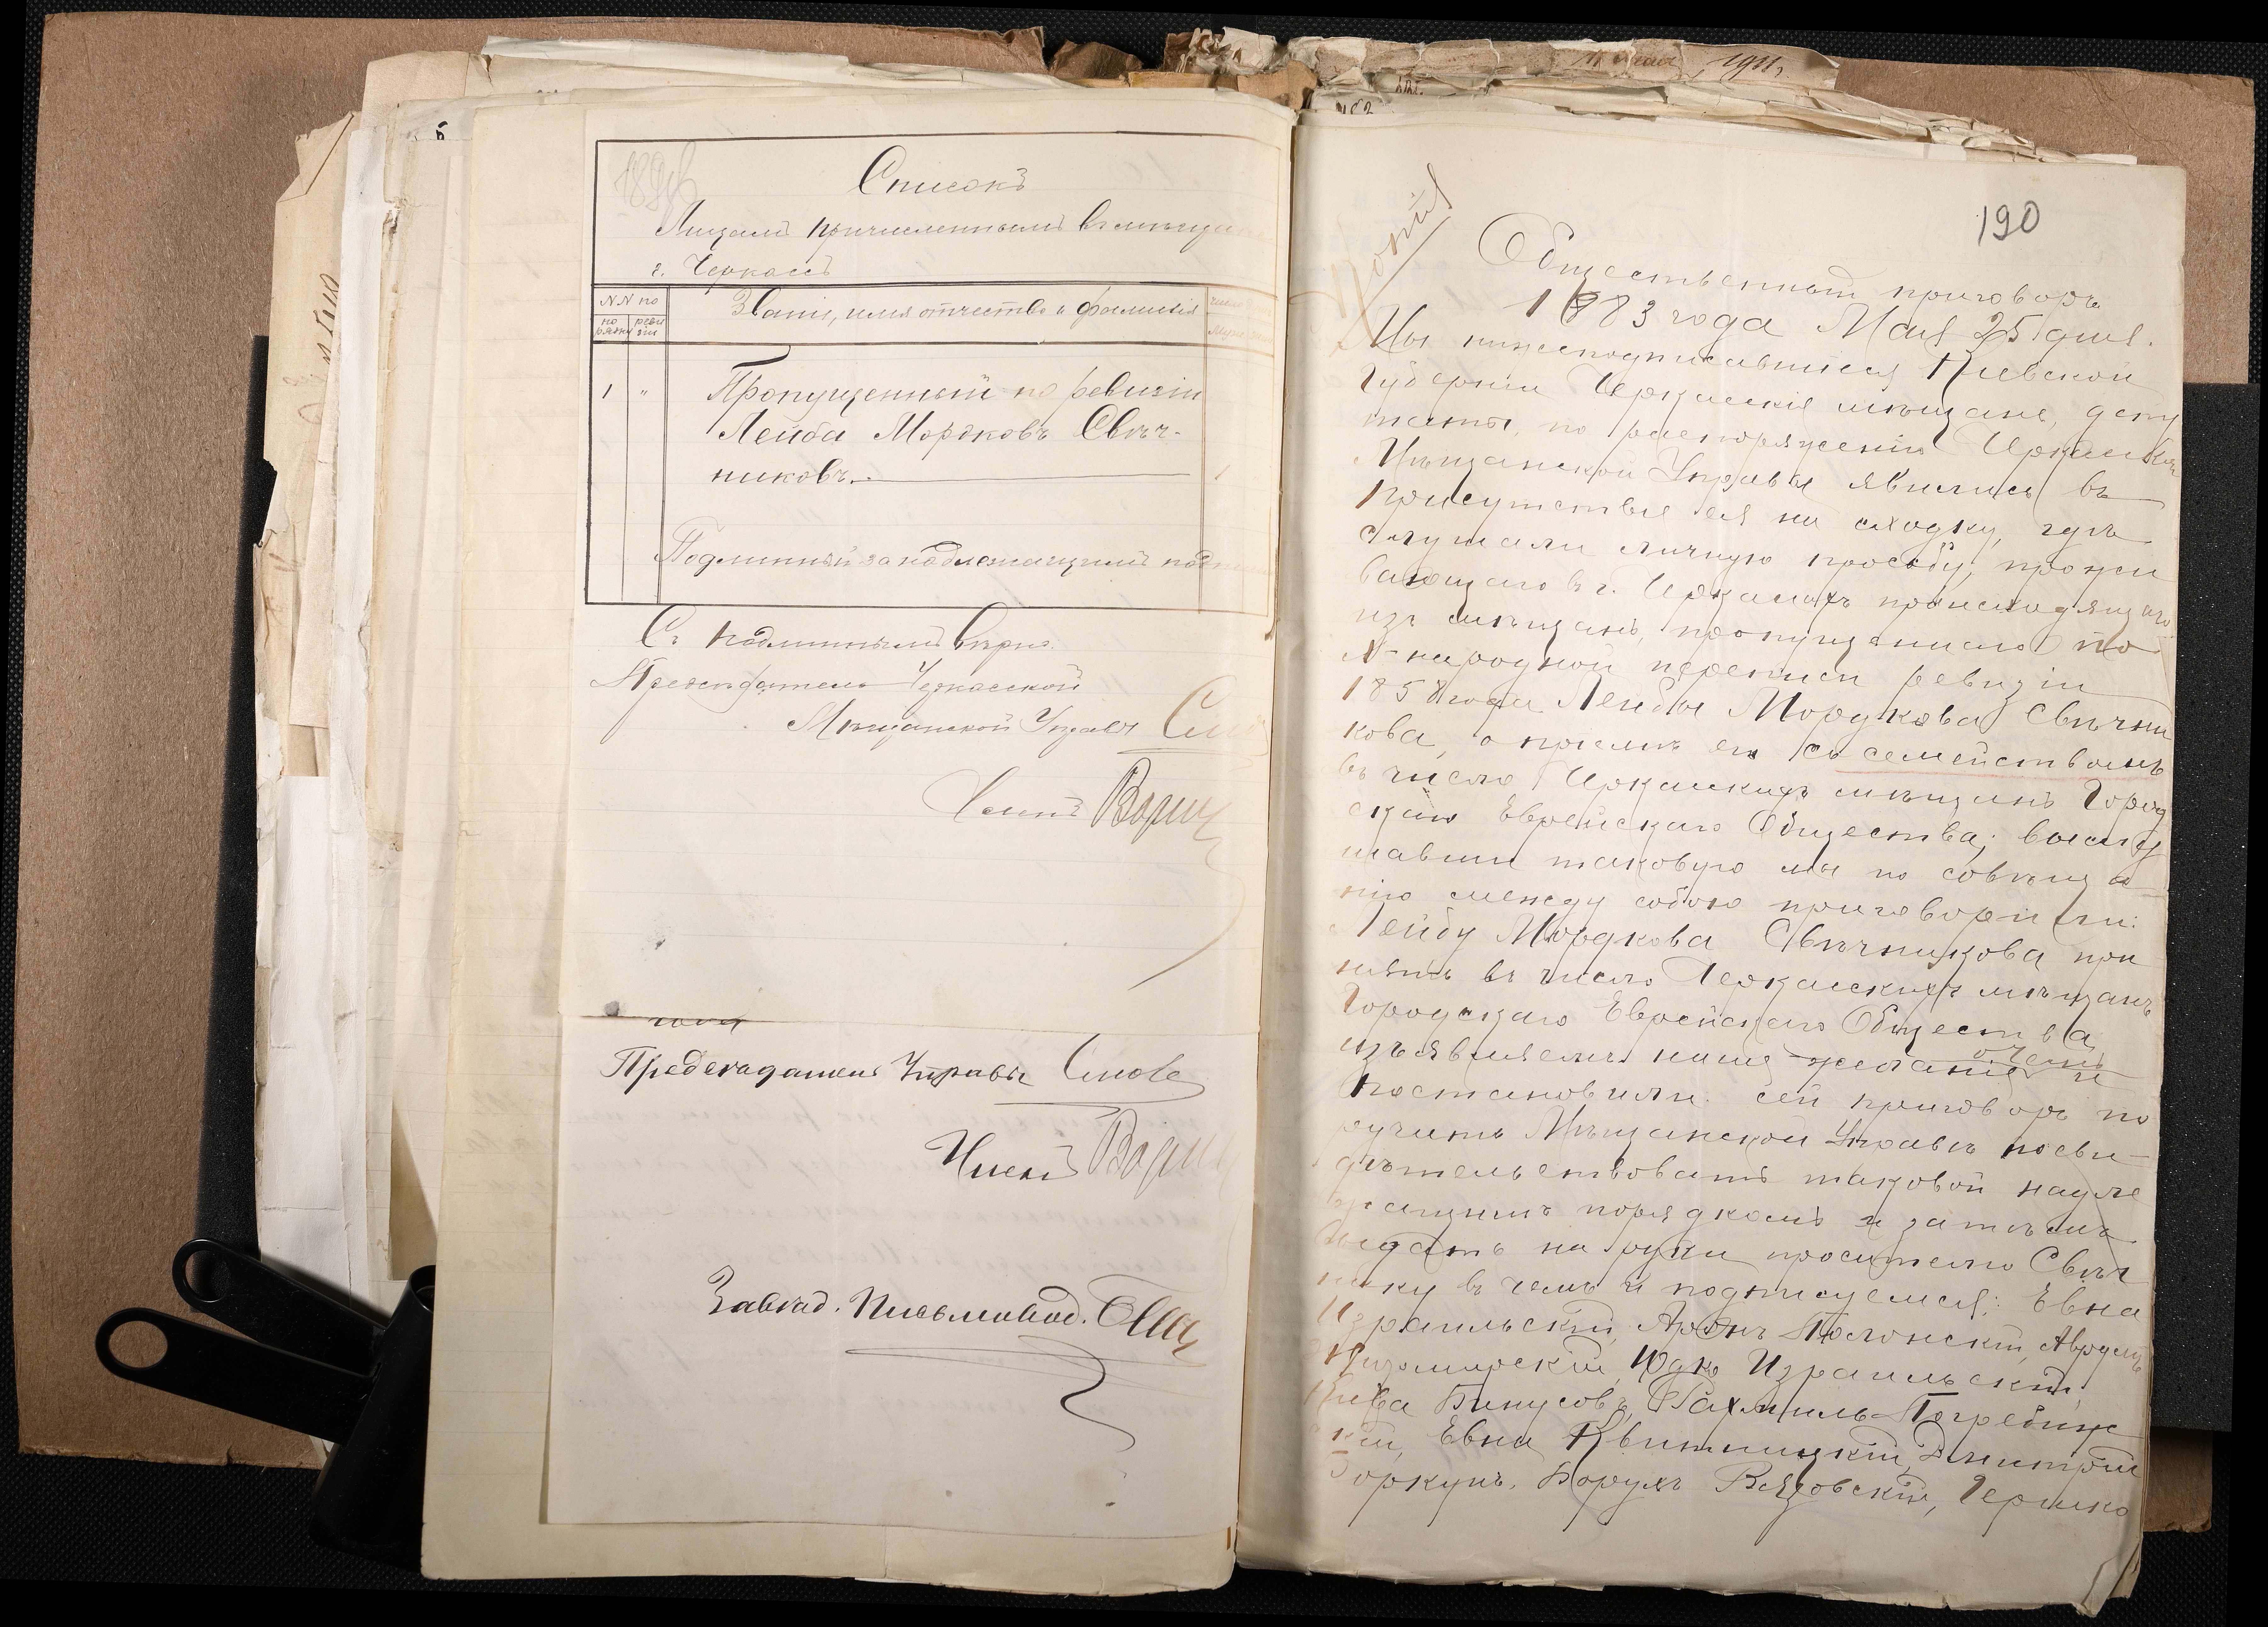 Списокъ
Лицамъ причисленнымъ въ мѣщане
г. Черкассъ
NN по
по рядку
реви зіи
Званіе, имя отчество и фамилія
число
1 " Пропущенный по ревизіи
Лейба Мордковъ Свѣч-
никовъ. 1
Подлинный за надлежащимъ подписомъ
Съ подлиннымъ вѣрно:
Предсѣдатель Черкасской
Мѣщанской Управы
Членъ
Предсѣдатель Управы
Членъ
Завѣд. Письмовод.
11 Мая 1911 г.
190
Копія
Общественный приговоръ
1883 года Мая 25 дня.
Мы нижеподписавшіеся Кіевской
Губерніи Черкасскіе мѣщане, депу
таты, по распоряженію Черкасской
Мѣщанской Управы явились въ
присутствіе ея на сходку, гдѣ
слушали личную просьбу, прожи
вающаго въ г. Черкассахъ происходящаго
изъ мѣщанъ, пропущеннаго по
X народной переписи ревизіи
1858 года Лейбы Мордкова Свѣчни
кова, о пріемѣ его съ семействомъ
въ число Черкасскихъ мѣщанъ Город
скаго Еврейскаго Общества; выслу
шавши таковую мы по совѣща
нію между собою приговорили:
Лейбу Мордкова Свѣчникова при
нять въ число Черкасскихъ мѣщанъ
Городскаго Еврейскаго Общества
изъявляемъ наше желаніе о чемъ и
постановили: сей приговоръ по
ручить Мѣщанской Управѣ посви-
дѣтельствовать таковой надле
жащимъ порядкомъ и затѣмъ
выдать на руки просителю Свѣч
нику въ чемъ и подписуемся: Евна
Израильскій, Аронъ Полонскій, Аврумъ
Житомирскій, Юдко Израильскій,
Кива Бинусовъ, Рахмиль Погребиж
скій, Евна Квитницкій, Дмитрій
Горкунъ, Борухъ Вязовскій, Гершко